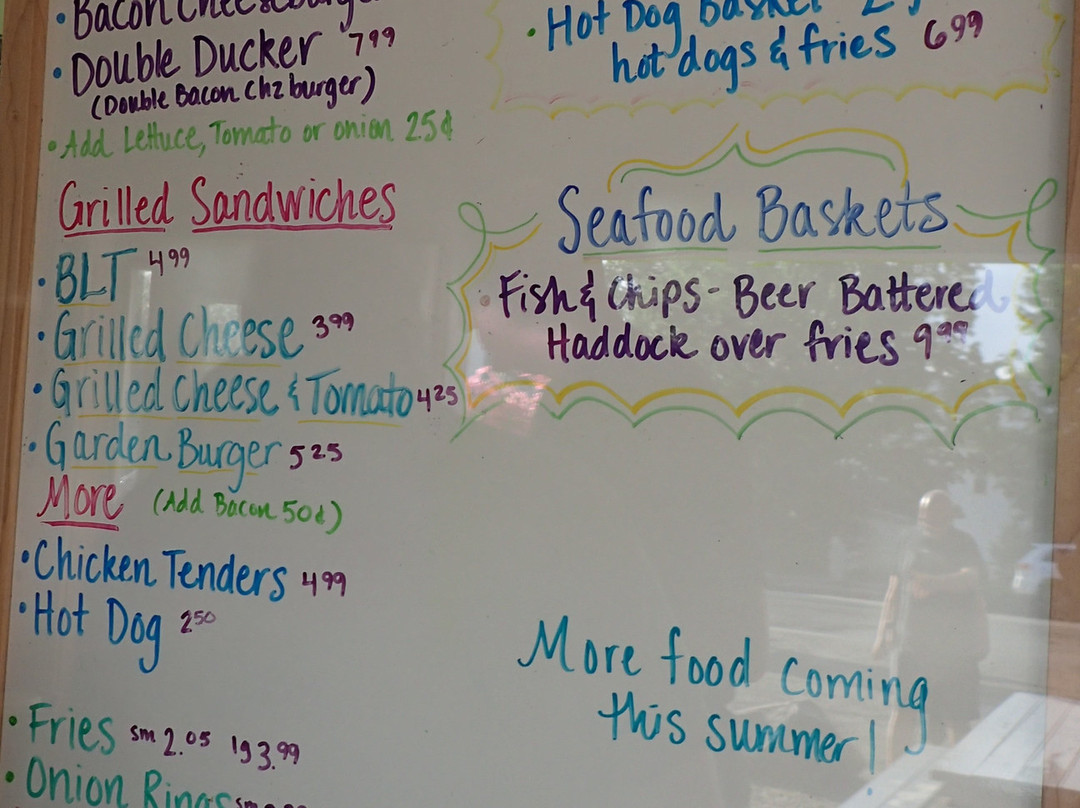 • Bacon Cheeseburger
• Double Ducker 7 99
(Double Bacon Chz burger)
• Add Lettuce, Tomato or onion 25¢
Grilled Sandwiches
• BLT 4 99
• Grilled Cheese 3 99
• Grilled Cheese & Tomato 4 25
• Garden Burger 5 25
More (Add Bacon 50¢)
• Chicken Tenders 4 99
• Hot Dog 2 50
• Fries sm 2.05 lg 3.99
• Onion Rings sm
• Hot Dog Basket 2
hot dogs & fries 6 99
Seafood Baskets
• Fish & Chips - Beer Battered
Haddock over fries 9 99
More food coming
this summer!